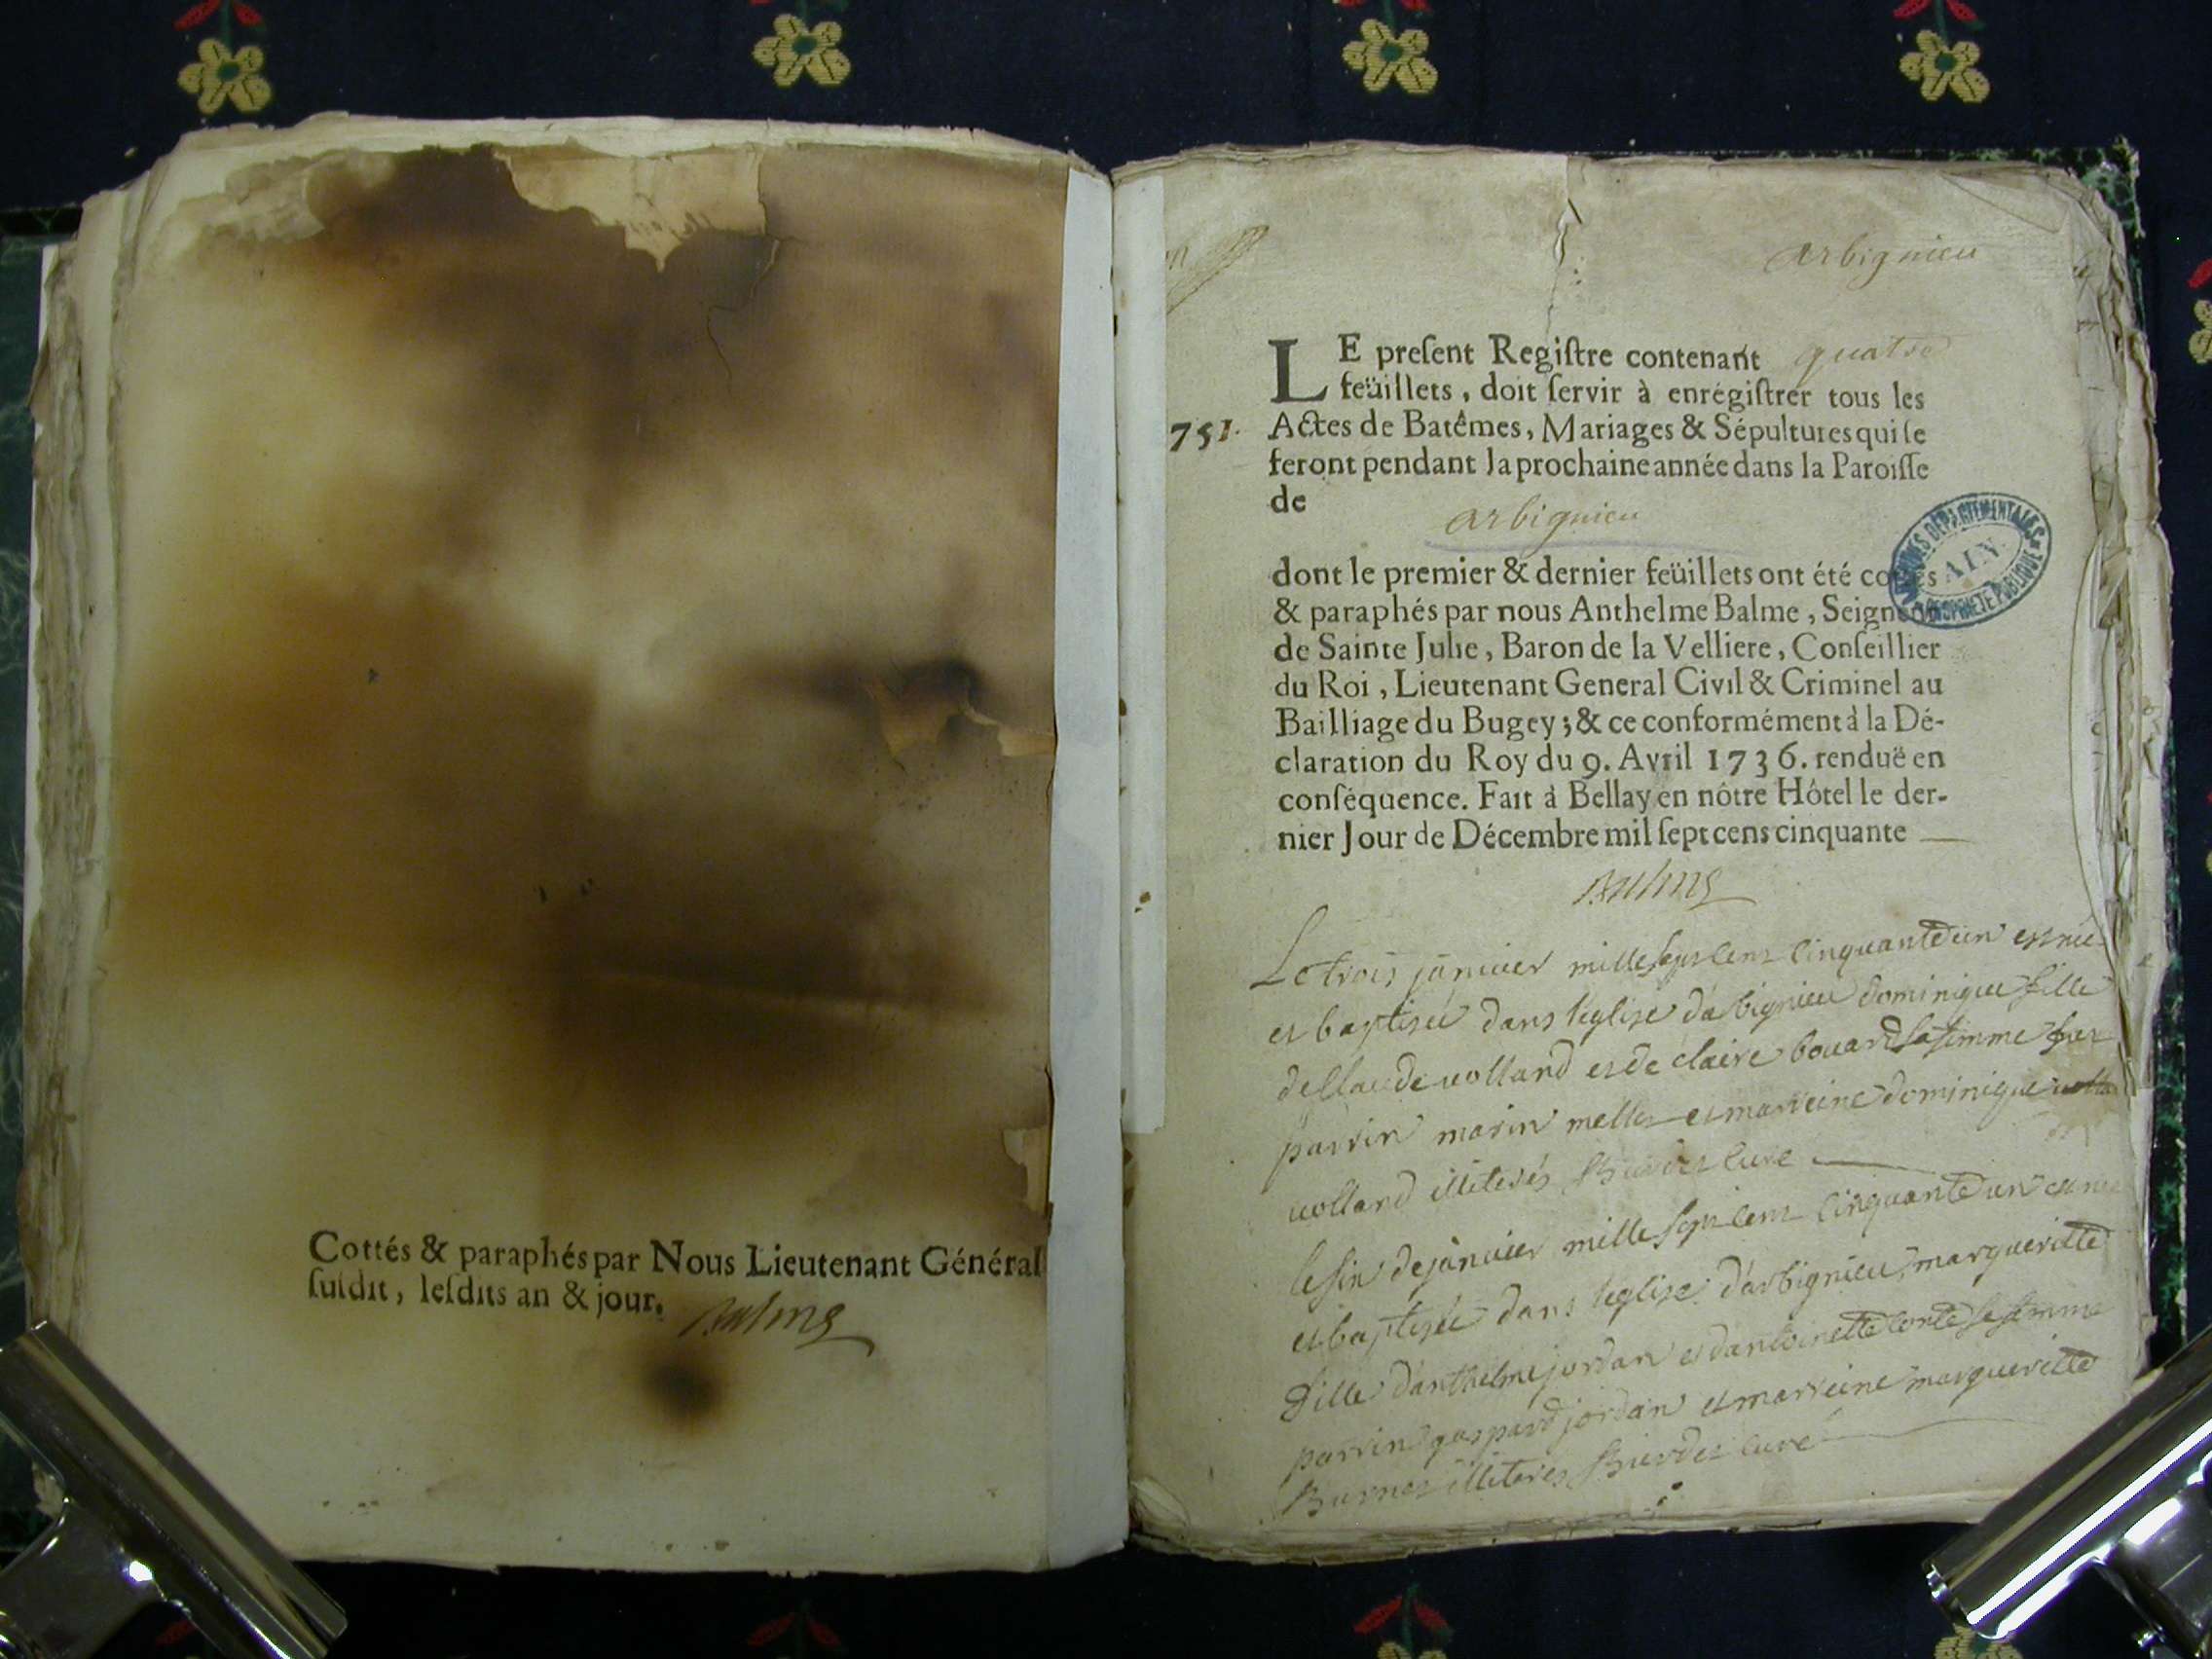 Cottés & paraphés par Nous Lieutenant Général
ſuſdit, leſdits an & jour.
Balme
arbignieu
LE preſent Regiſtre contenant quatre
feüillets, doit ſervir à enrégiſtrer tous les
751.
Actes de Batêmes, Mariages & Sépultures qui ſe
feront pendant la prochaine année dans la Paroiſſe
de
arbignieu
dont le premier & dernier feüillets ont été cottés
& paraphés par nous Anthelme Balme, Seigneur
de Sainte Julie, Baron de la Velliere, Conſeillier
du Roi, Lieutenant General Civil & Criminel au
Bailliage du Bugey; & ce conformément à la Dé-
claration du Roy du 9. Avril 1736. renduë en
conſéquence. Fait à Bellay en nôtre Hôtel le der-
nier Jour de Décembre mil ſept cens cinquante
ARCHIVES DÉPARTEMENTALES
AIN
PROPRIÉTÉ PUBLIQUE
Balme
Le trois januier mille sept cent cinquante un est née
et baptisée dans leglise darbignieu dominique fille
de claude uolland et de claire bouard sa femme
parrin marin mellet et marreine dominique
uolland illiterés Burdet curé
le six de januier mille sept cent cinquante un est née
et baptisée dans leglise darbignieu margueritte
fille danthelme jordan et dantoinette conte sa femme
parrin gaspard jordan et marreine margueritte
Burnet illiteres Burdet curé